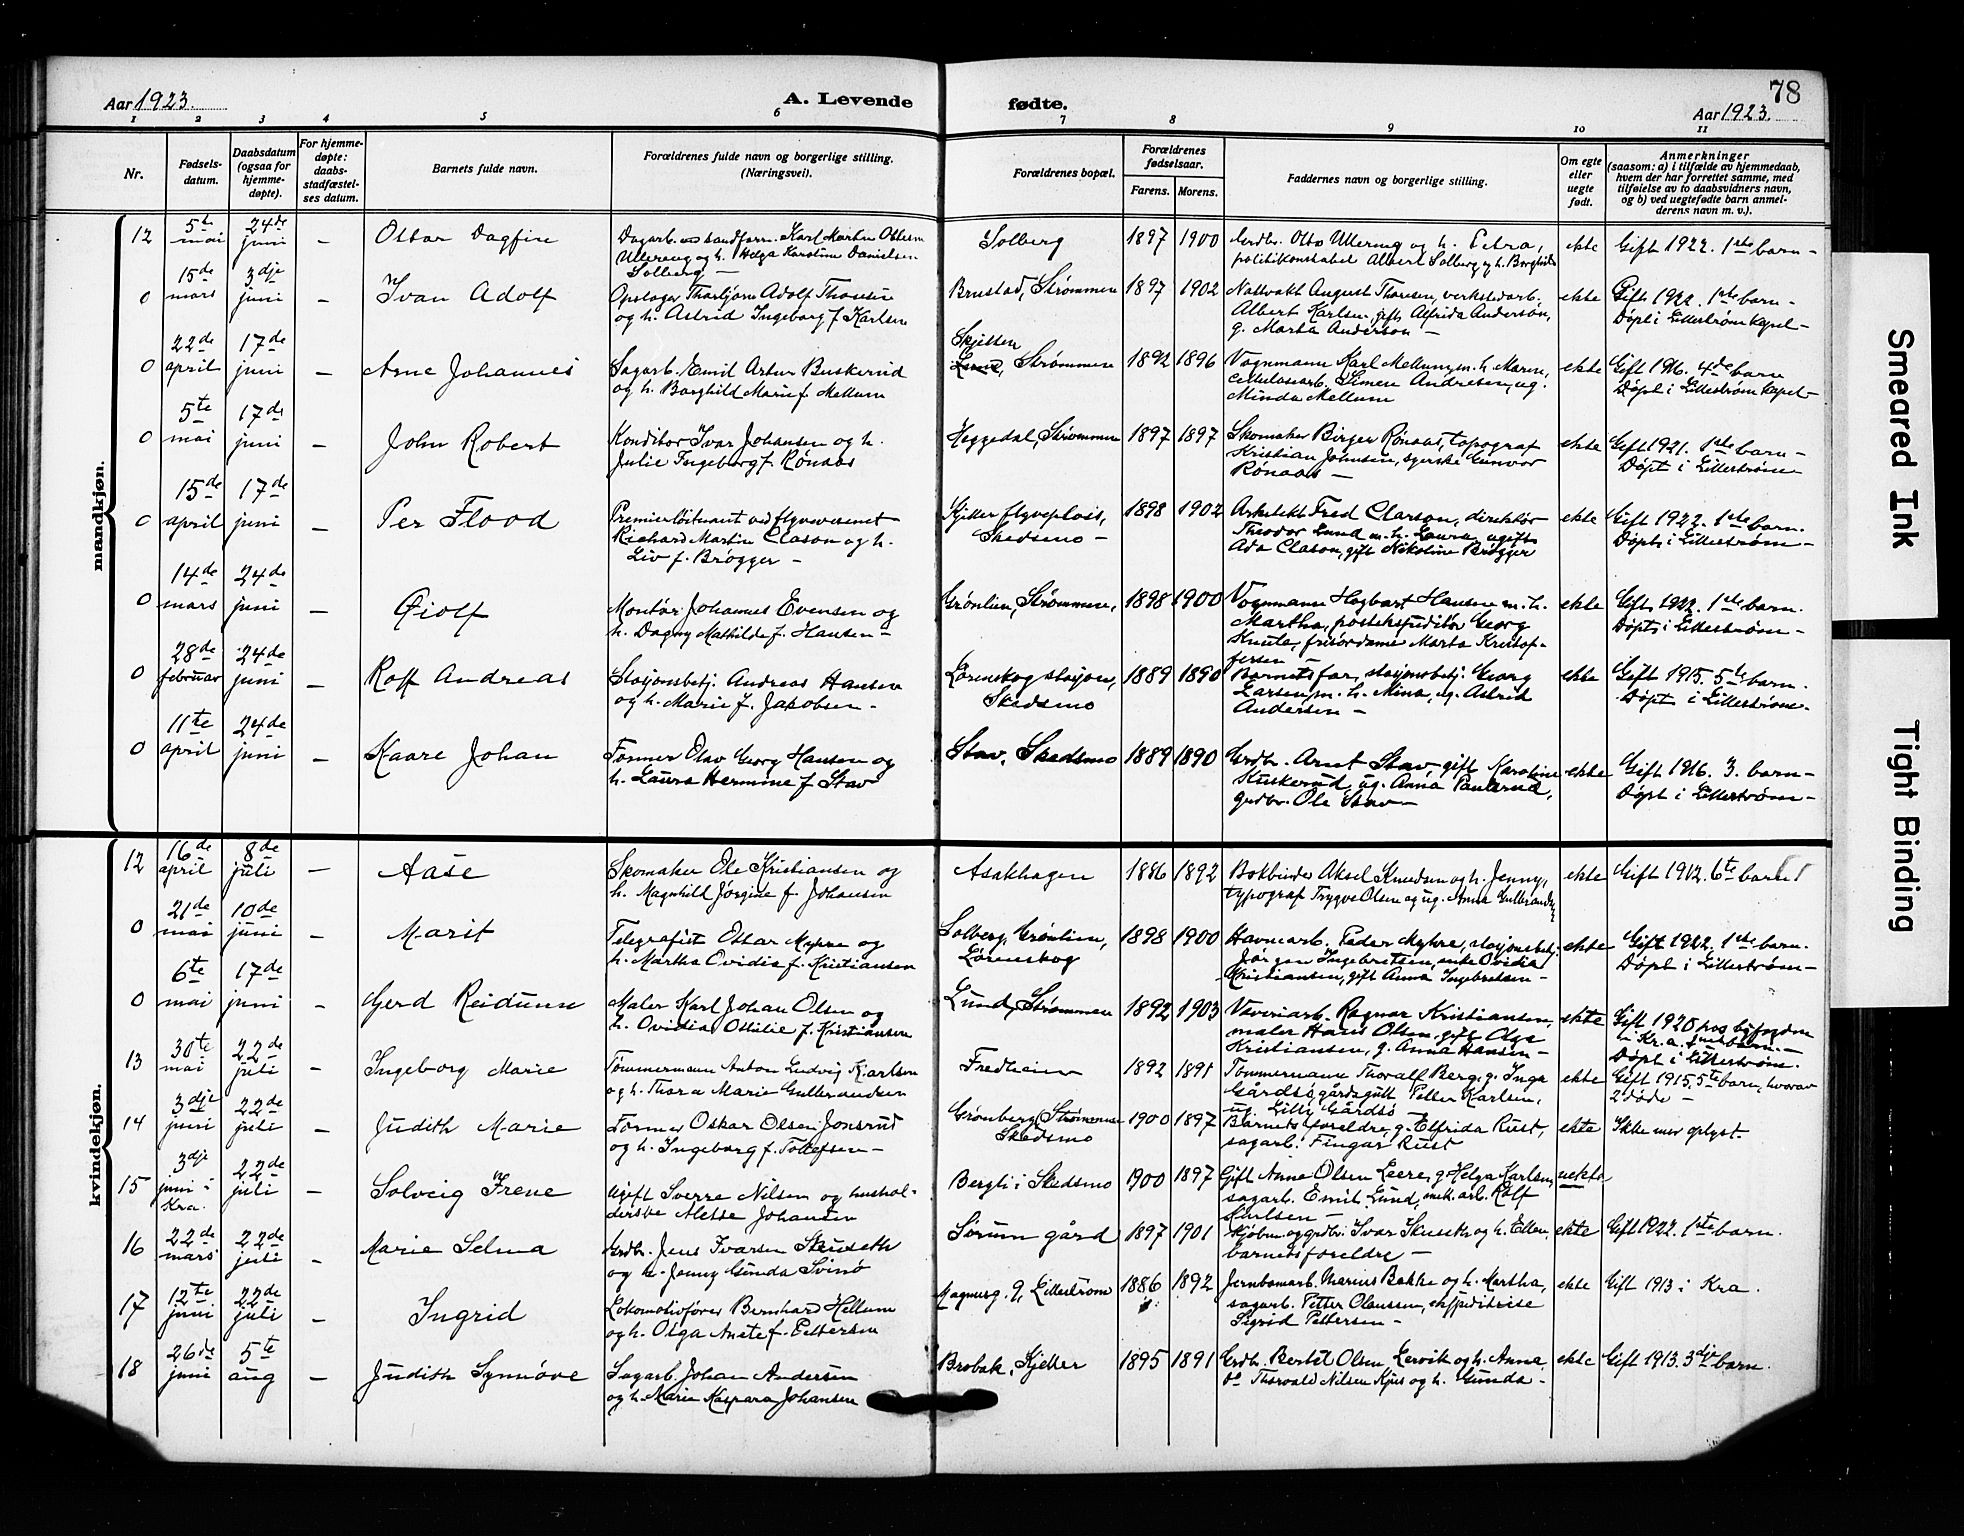 78
Aar 1923.
A. Levende fødte.
Aar 1923.
1 2 3 4 5 6 7 8 9 10 11
Nr.
Fødsels-
datum.
Daabsdatum
(ogsaa for
hjemme-
døpte).
For hjemme-
døpte:
daabs-
stadfæstel-
ses datum.
Barnets fulde navn.
Forældrenes fulde navn og borgerlige stilling.
(Næringsvei).
Forældrenes bopæl.
Forældrenes
fødselsaar.
Farens. Morens.
Faddernes navn og borgerlige stilling.
Om egte
eller
uegte
født.
Anmerkninger
(saasom: a) i tilfælde av hjemmedaab,
hvem der har forrettet samme, med
tilføielse av to daabsvidners navn,
og b) ved uegtefødte barn anmel-
derens navn m. v.).
mandkjøn.
12 5te mai 24de juni – Ottar Dagfin
Dagarb. Karl Martin Ottesen
Ullereng og h. Helga Karoline Danielsen
Solberg –
Solberg 1897 1900
Grdbr. Otto Ullereng og h. Petra,
politikonstabel Albert Solberg og h. Borghild
ekte Gift 1922. 1ste barn –
0 15de mars 3dje juni – Ivan Adolf
Opslager Thorbjørn Adolf Thoresen
og h. Astrid Ingeborg f. Karlsen
Brustad, Strømmen 1897 1902
Nattvakt August Thoresen, verkstedarb.
Albert Karlsen, gift Alfrida Anderson,
g. Marta Anderson –
ekte Gift 1922. 1ste barn –
Døpt i Lillestrøm kapel –
0 22de april 17de juni – Arne Johannes
Sagarb. Emil Artur Buskerud
og h. Borghild Marie f. Mellum
Skjetten
Lund, Strømmen 1892 1896
Vognmann Karl Mellum m. h. Maren,
cellulosearb. Simen Andresen, ug.
Minda Mellum
ekte Gift 1916. 4de barn
Døpt i Lillestrøm kapel –
0 5te mai 17de juni – John Robert
Konditor Ivar Johansen og h.
Julie Ingeborg f. Rønaas
Heggedal, Strømmen 1897 1897
Skomaker Birger Rønaas, topograf
Kristian Johnsen, syerske Gunvor
Rønaas –
ekte Gift 1921. 1ste barn –
Døpt i Lillestrøm
0 15de april 17de juni – Per Flood
Premierløitnant ved flyvevesenet
Richard Martin Clason og h.
Liv f. Brøgger –
Kjeller flyveplass,
Skedsmo – 1898 1902
Arkitekt Fred Clason, direktør
Theodor Lund m. h. Laura, ugift
Ada Clason, gift Nikoline Brøgger
ekte Gift 1922. 1ste barn.
Døpt i Lillestrøm –
0 14de mars 24de juni – Øiolf
Montør Johannes Evensen og
h. Dagny Mathilde f. Hansen –
Grønlien, Strømmen, 1898 1900
Vognmann Hagbart Hansen m. h.
Martha, postekspeditør Georg
Knutle, frisørdame Marta Kristof-
fersen –
ekte Gift 1922. 1ste barn.
Døpt i Lillestrøm –
0 28de februar 24de juni – Rolf Andreas
Stasjonsbetj. Andreas Hansen
og h. Marie f. Jakobsen –
Lørenskog stasjon,
Skedsmo 1889 1890
Barnets far, stasjonsbetj. Georg
Larsen m. h. Mina, ug. Astrid
Andersen –
ekte Gift 1915. 5te barn.
Døpt i Lillestrøm –
0 11te april 24de juni – Kaare Johan
Former Olav Georg Hansen og
h. Laura Hermine f. Stav
Stav, Skedsmo 1889 1890
Grdbr. Arnt Stav, gift Karoline
Huskerud, ug. Anna Paulsrud,
grdbr. Ole Stav –
ekte Gift 1916. 3. barn –
Døpt i Lillestrøm –
kvindekjøn.
12 16de april 8de juli – Aase
Skomaker Ole Kristiansen og
h. Magnhild Jørgine f. Johansen
Asakhagen 1886 1892
Bokbinder Aksel Knudsen og h. Jenny,
typograf Trygve Olsen og ug. Anna Gulbrandsen
ekte Gift 1912. 6te barn
0 21de mai 10de juni – Marit
Telegrafist Ottar Myhre og
h. Martha Ovidia f. Kristiansen
Solberg, Grønlien,
Lørenskog 1898 1900
Havnearb. Peder Myhre, stasjonsbetj.
Jørgen Ingebretsen, enke Ovidia
Kristiansen, gift Anna Ingebretsen –
ekte Gift 1922. 1ste barn.
Døpt i Lillestrøm –
0 6te mai 17de juni – Gerd Reidunn
Maler Karl Johan Olsen og
h. Ovidia Ottilie f. Kristiansen
Lund, Strømmen 1892 1903
Væveriarb. Ragnar Kristiansen,
maler Hans Olsen, gift Olga
Kristiansen, g. Anna Hansen –
ekte Gift 1920 hos byfogden
i Kr.a. barn. –
Døpt i Lillestrøm.
13 30te mai 22de juli – Ingeborg Marie
Tømmermann Anton Ludvig Karlsen
og h. Thora Marie Gulbrandsen
Fredheim 1892 1891
Tømmermann Thoralf Berg, g. Inga
Gårdsø, gårdsgutt Petter Karlsen,
ug. Lilly Gårdsø –
ekte Gift 1915. 5te barn, hvorav
2 døde –
14 3dje juni 22de juli – Judith Marie
Former Oskar Olsen Jonsrud
og h. Ingeborg f. Tollefsen –
Grønberg, Strømmen
Skedsmo 1900 1897
Barnets foreldre, g. Elfrida Rust,
sagarb. Fingar Rust
ekte Ikke mer oplyst.
15 3dje juni i Kra. 22de juli – Solveig Irene
Ugift Sverre Nilsen og hushol-
derske Alette Johansen
Bergli i Skedsmo 1900 1897
Gift Anna Olsen Leere, g. Helga Karlsen,
sagarb. Emil Lund, mek. arb. Rolf
Karlsen –
uekte
16 22de mars 22de juli – Marie Selma
Grdbr. Jens Ivarsen Skuseth
og h. Jenny Gunda Svinø
Sørum gård 1897 1901
Kjøbm. og grdbr. Ivar Skuseth og h. Ellen,
barnets foreldre –
ekte Gift 1922. 1ste barn.
17 12te juni 22de juli – Ingrid
Lokomotivfører Bernhard Hellum
og h. Olga Anete f. Pettersen
Magnusg. 9, Lillestrøm 1886 1892
Jernbanearb. Marius Bakke og h. Martha,
sagarb. Petter Olaussen, ekspeditrise
Sigrid Pettersen –
ekte Gift 1913 i Kra.
18 26de juni 5te aug – Judith Synnøve
Sagarb. Johan Andersen
og h. Marie Kaspara Johansen
Brobak, Kjeller 1895 1891
Grdbr. Bertel Olsen Lervik og h. Anna,
do Thorvald Nilsen Kjus og h. Gunda –
ekte Gift 1913. 3dje barn.
Smeared Ink
Tight Binding